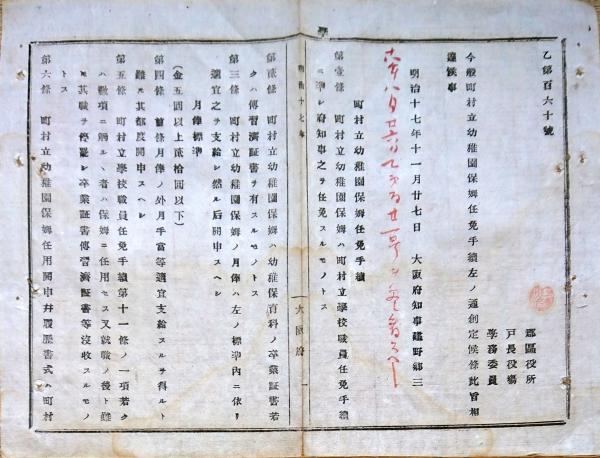 乙第百六十號
郡區役所
戸長役塲
學務委員
今般町村立幼稚園保姆任免手續左ノ通創定候條此旨相
達候事
明治十七年十一月廿七日　大阪府知事建野郷三
町村立幼稚園保姆任免手續
第壹條　町村立幼稚園保姆ハ町村立學校職員任免手續
ニ準シ府知事之ヲ任免スルモノトス
第貳條　町村立幼稚園保姆ハ幼稚保育科ノ卒業証書若
クハ傳習濟証書ヲ有スルモノトス
第三條　町村立幼稚園保姆ノ月俸ハ左ノ標準内ニ依リ
適宜之ヲ支給シ然ル后開申スヘシ
月俸標準
（金五圓以上貳拾圓以下）
第四條　前條月俸ノ外月手當等適宜支給スルヲ得ルト
雖モ其都度開申スヘシ
第五條　町村立學校職員任免手續第十一條ノ一項若ク
ハ數項ニ觸ルヽ者ハ保姆ニ任用セス又就職ノ後ト雖
モ其職ヲ停罷シ卒業証書傳習濟証書等沒收スルモノ
トス
第六條　町村立幼稚園保姆任用開申幷履歴書式ハ町村
明治十七年
大阪府